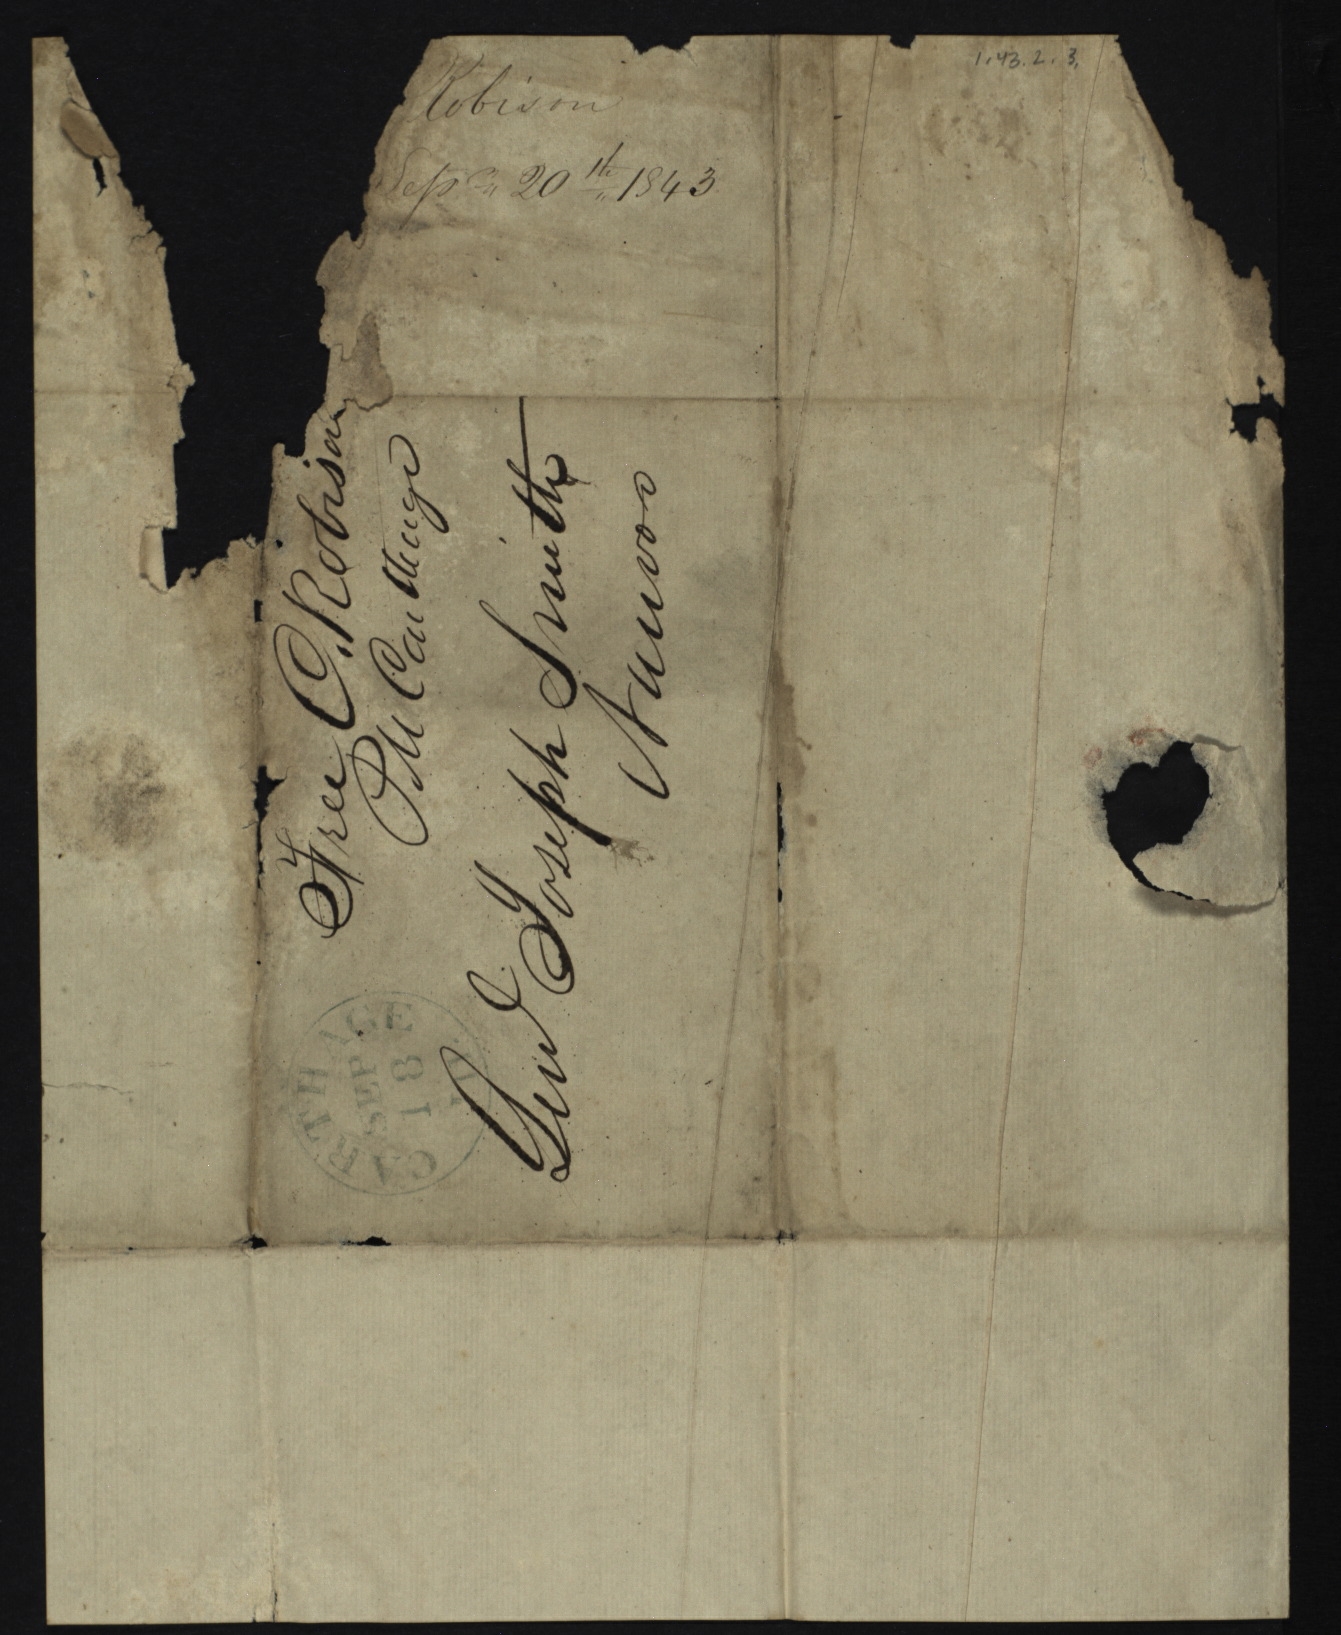 Robison
Sepr 20th 1843
1.43.2.3.
Free C. Robison
PM Carthage
Genl Joseph Smith
Nauvoo
CARTHAGE
SEP
18
Il.